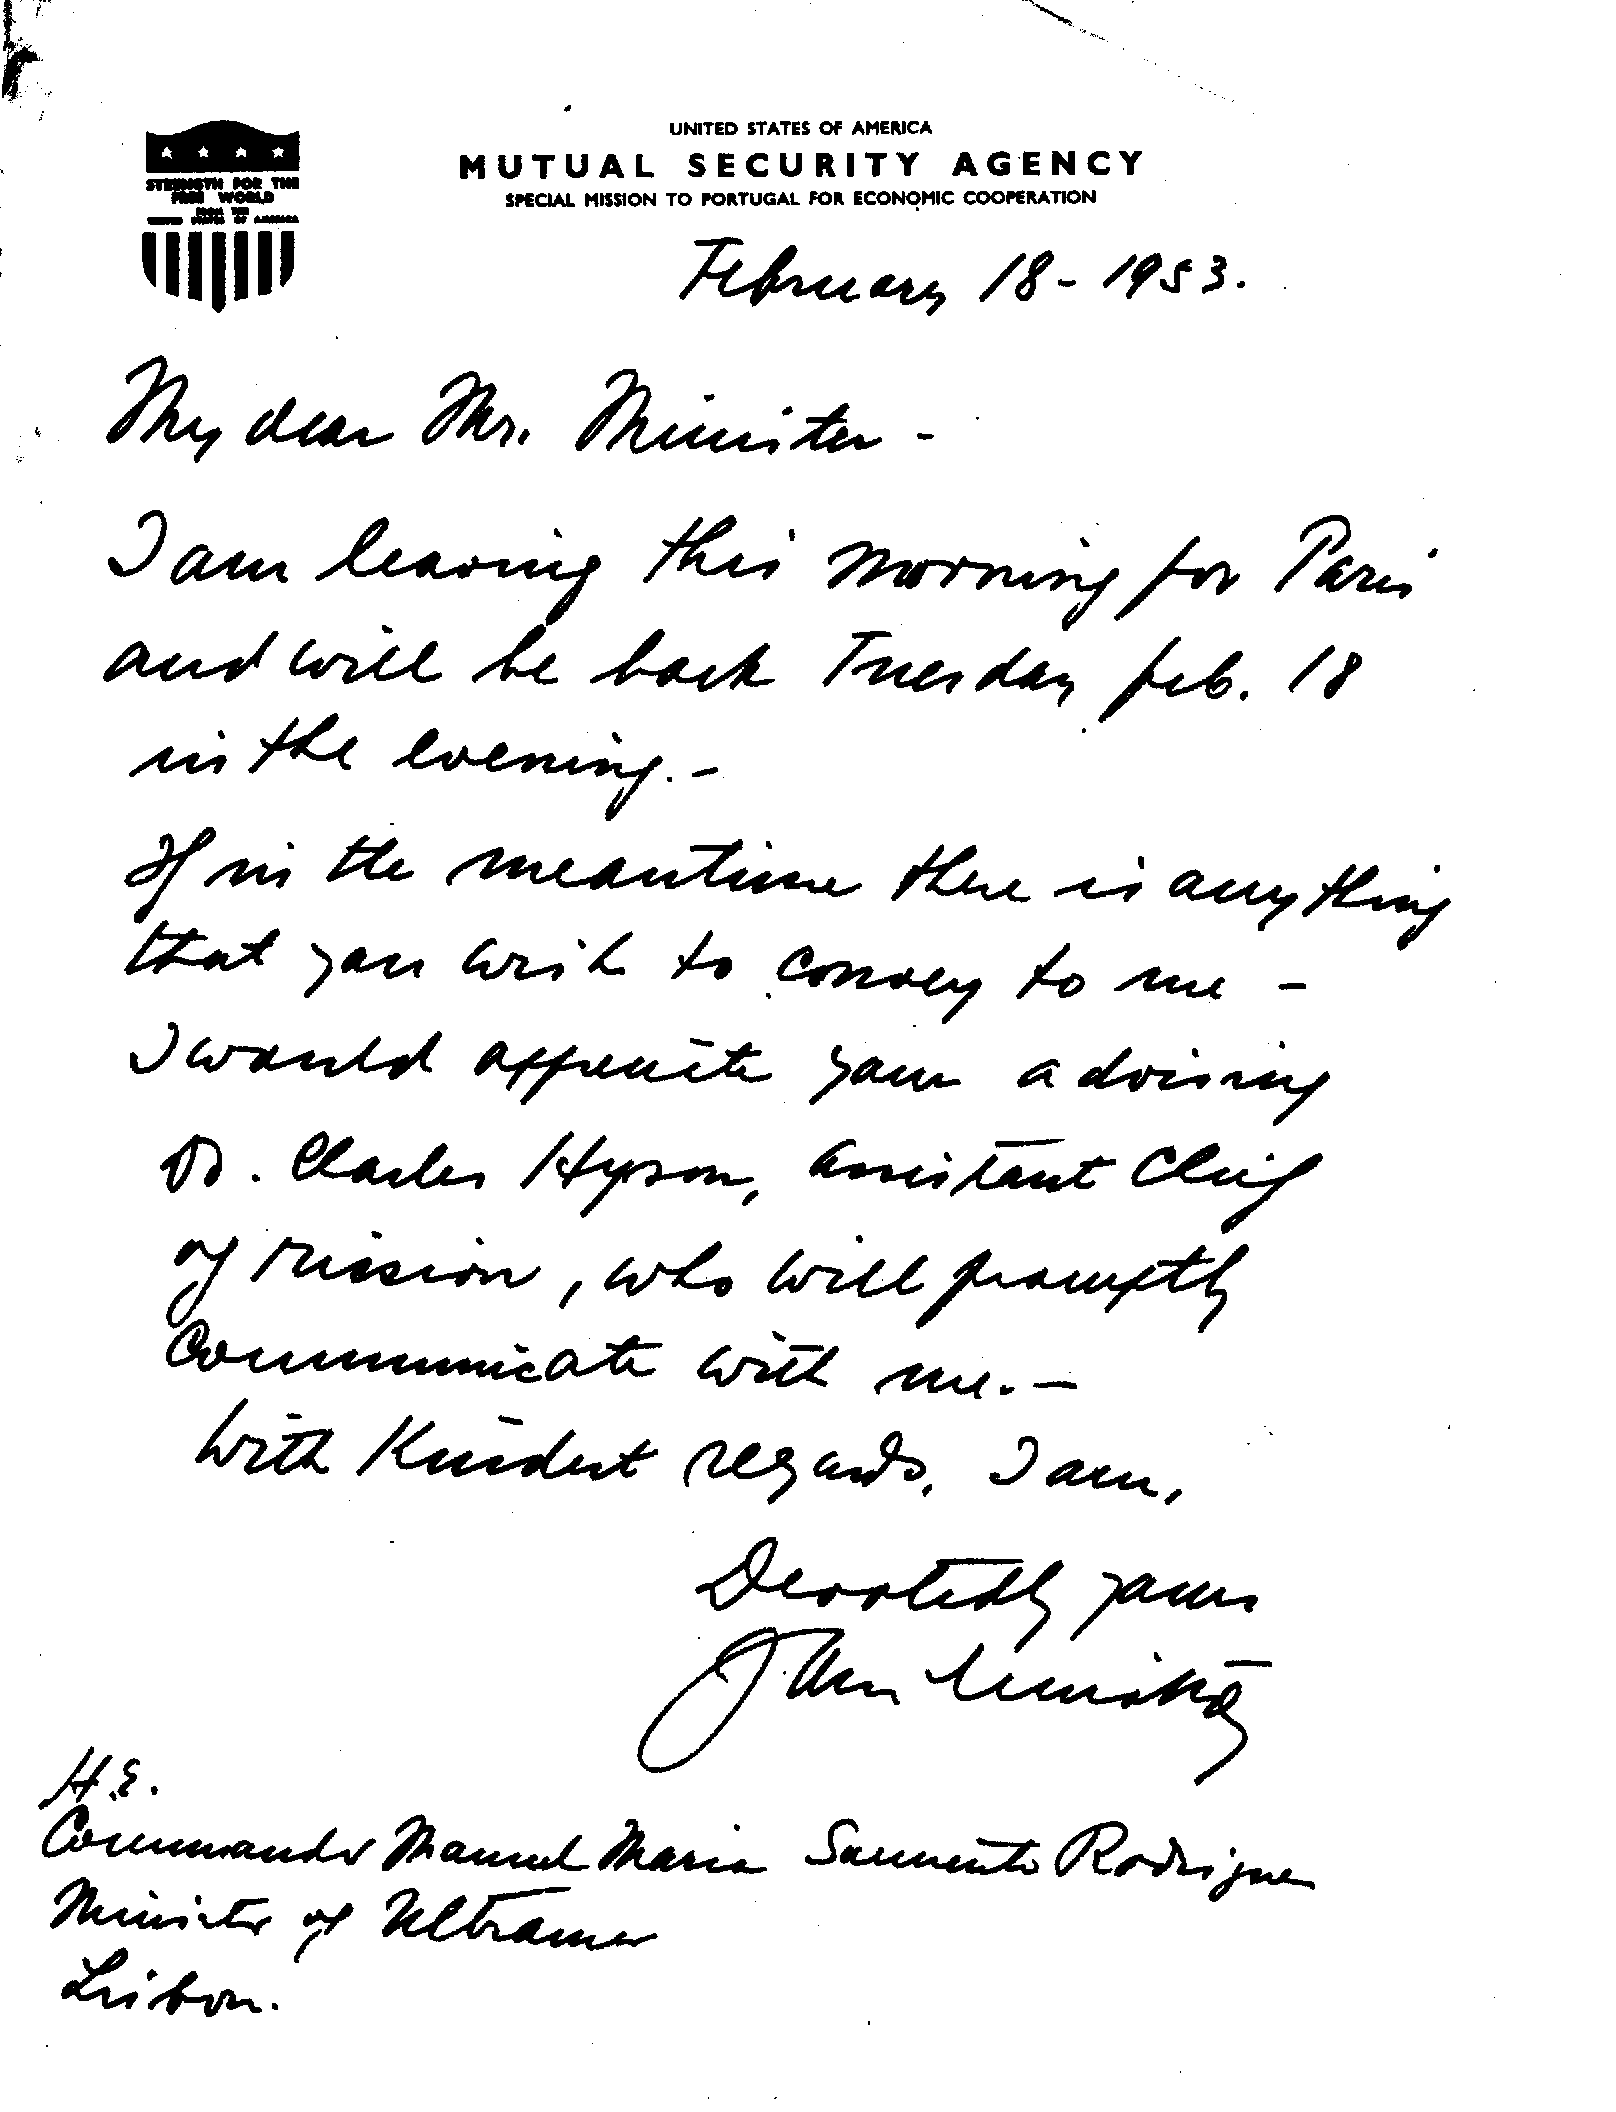 UNITED STATES OF AMERICA
MUTUAL SECURITY AGENCY
SPECIAL MISSION TO PORTUGAL FOR ECONOMIC COOPERATION
STRENGTH FOR THE
FREE WORLD
FROM THE
UNITED STATES OF AMERICA
February 18 - 1953.
My dear Mr. Minister -
I am leaving this morning for Paris
and will be back Tuesday feb. 18
in the evening. -
If in the meantime there is anything
that you wish to convey to me -
I would appreciate your advising
Dr. Charles Hyson, Assistant Chief
of Mission, who will promptly
Communicate with me. -
With Kindest regards, I am,
Devotedly yours
H.E.
Commander Manuel Maria Sarmento Rodrigues
Minister of Ultramar
Lisbon.